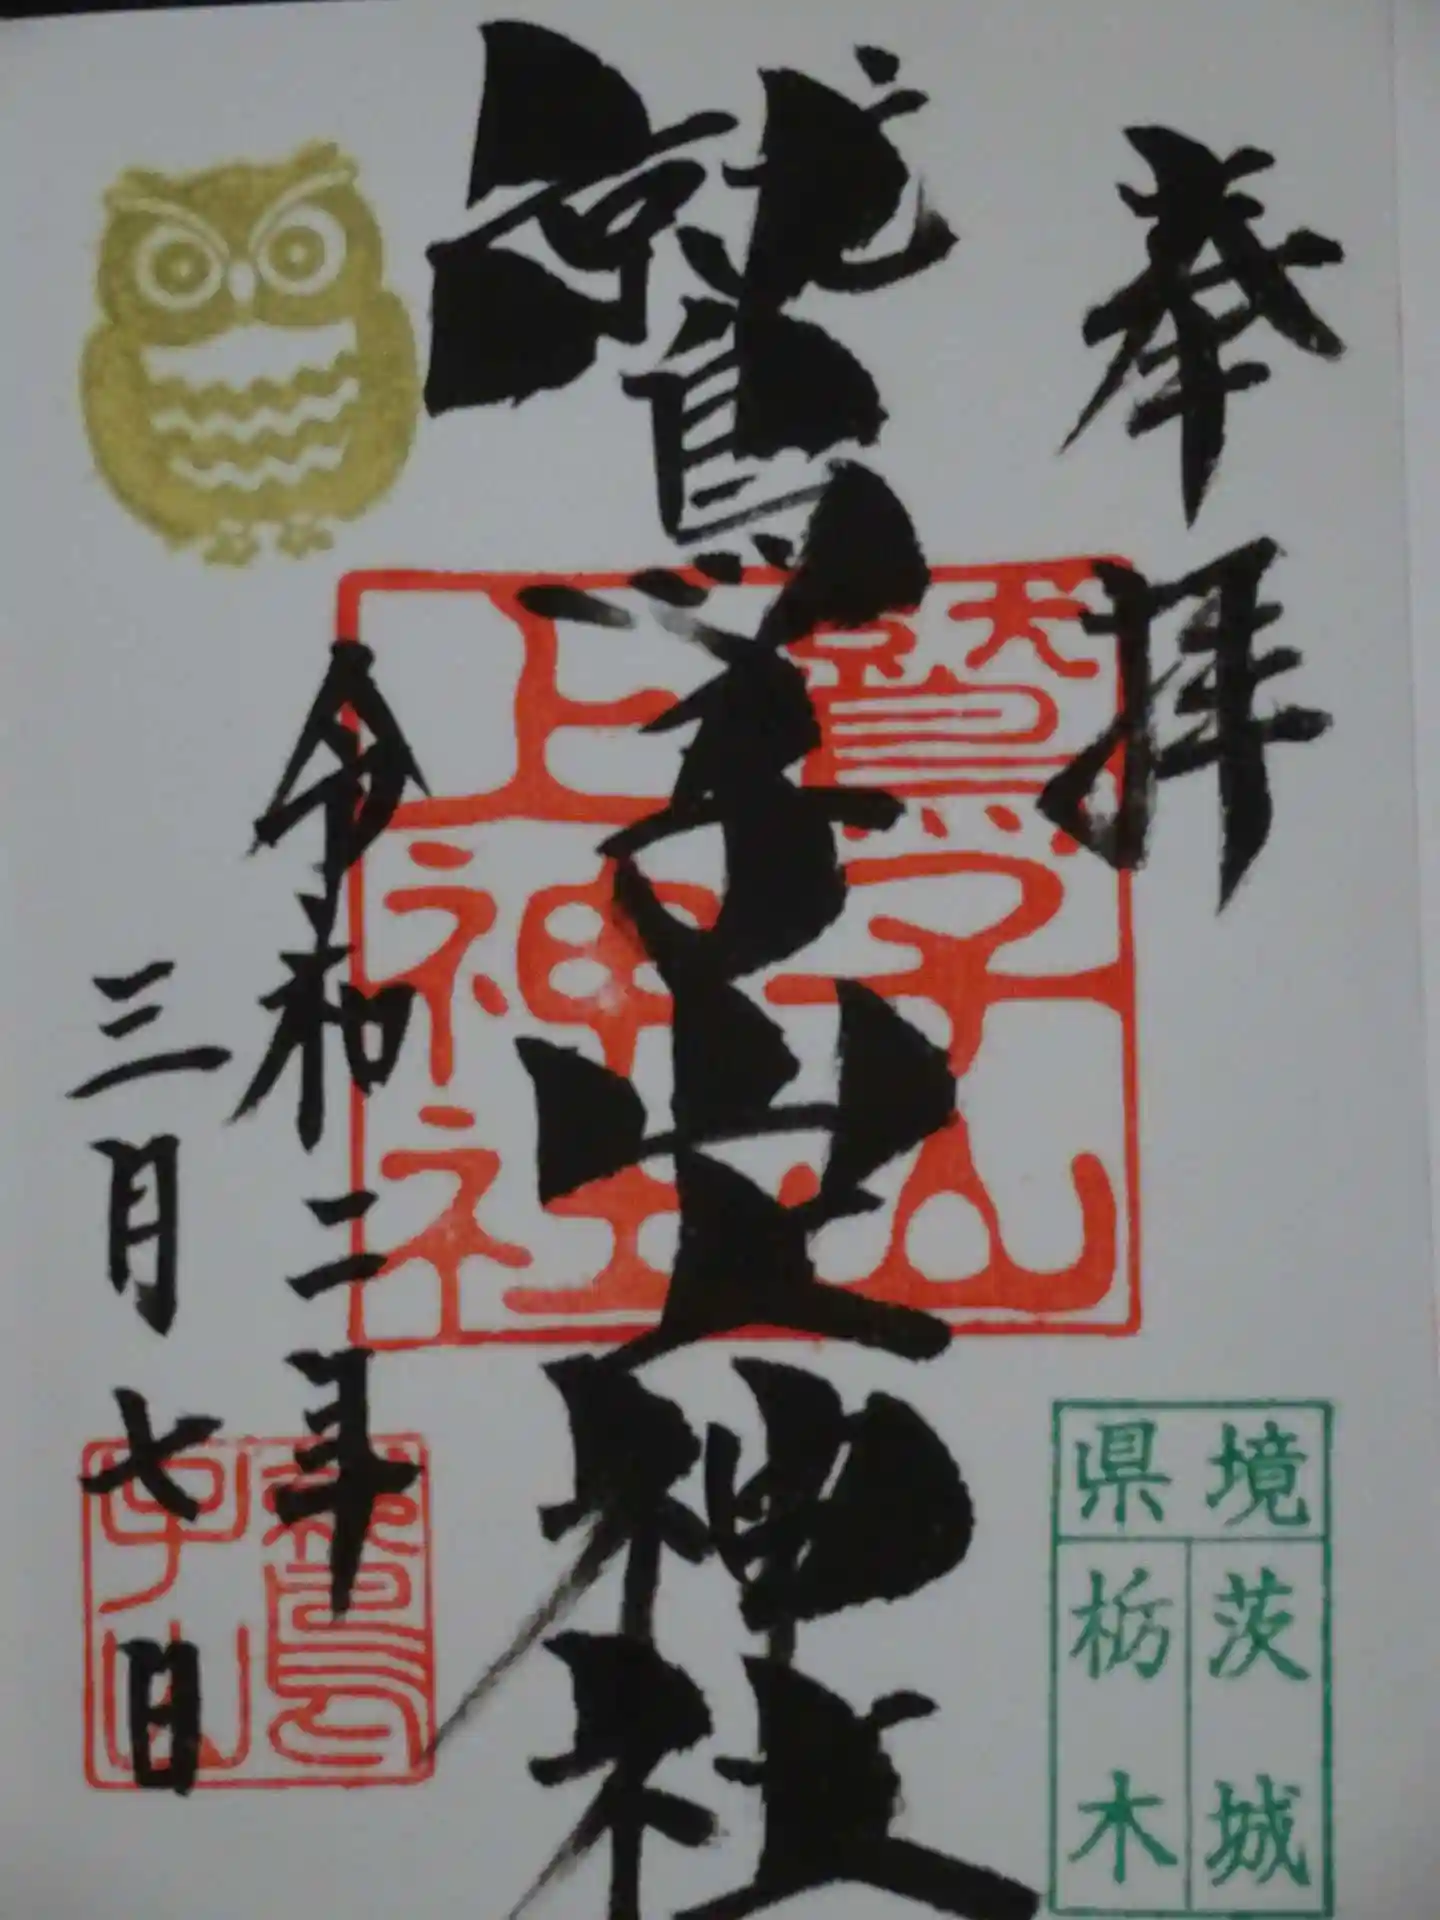 奉拝
鷲子山上神社
鷲子山
上神社
令和二年
三月七日
鷲
子山
境県
茨城
栃木